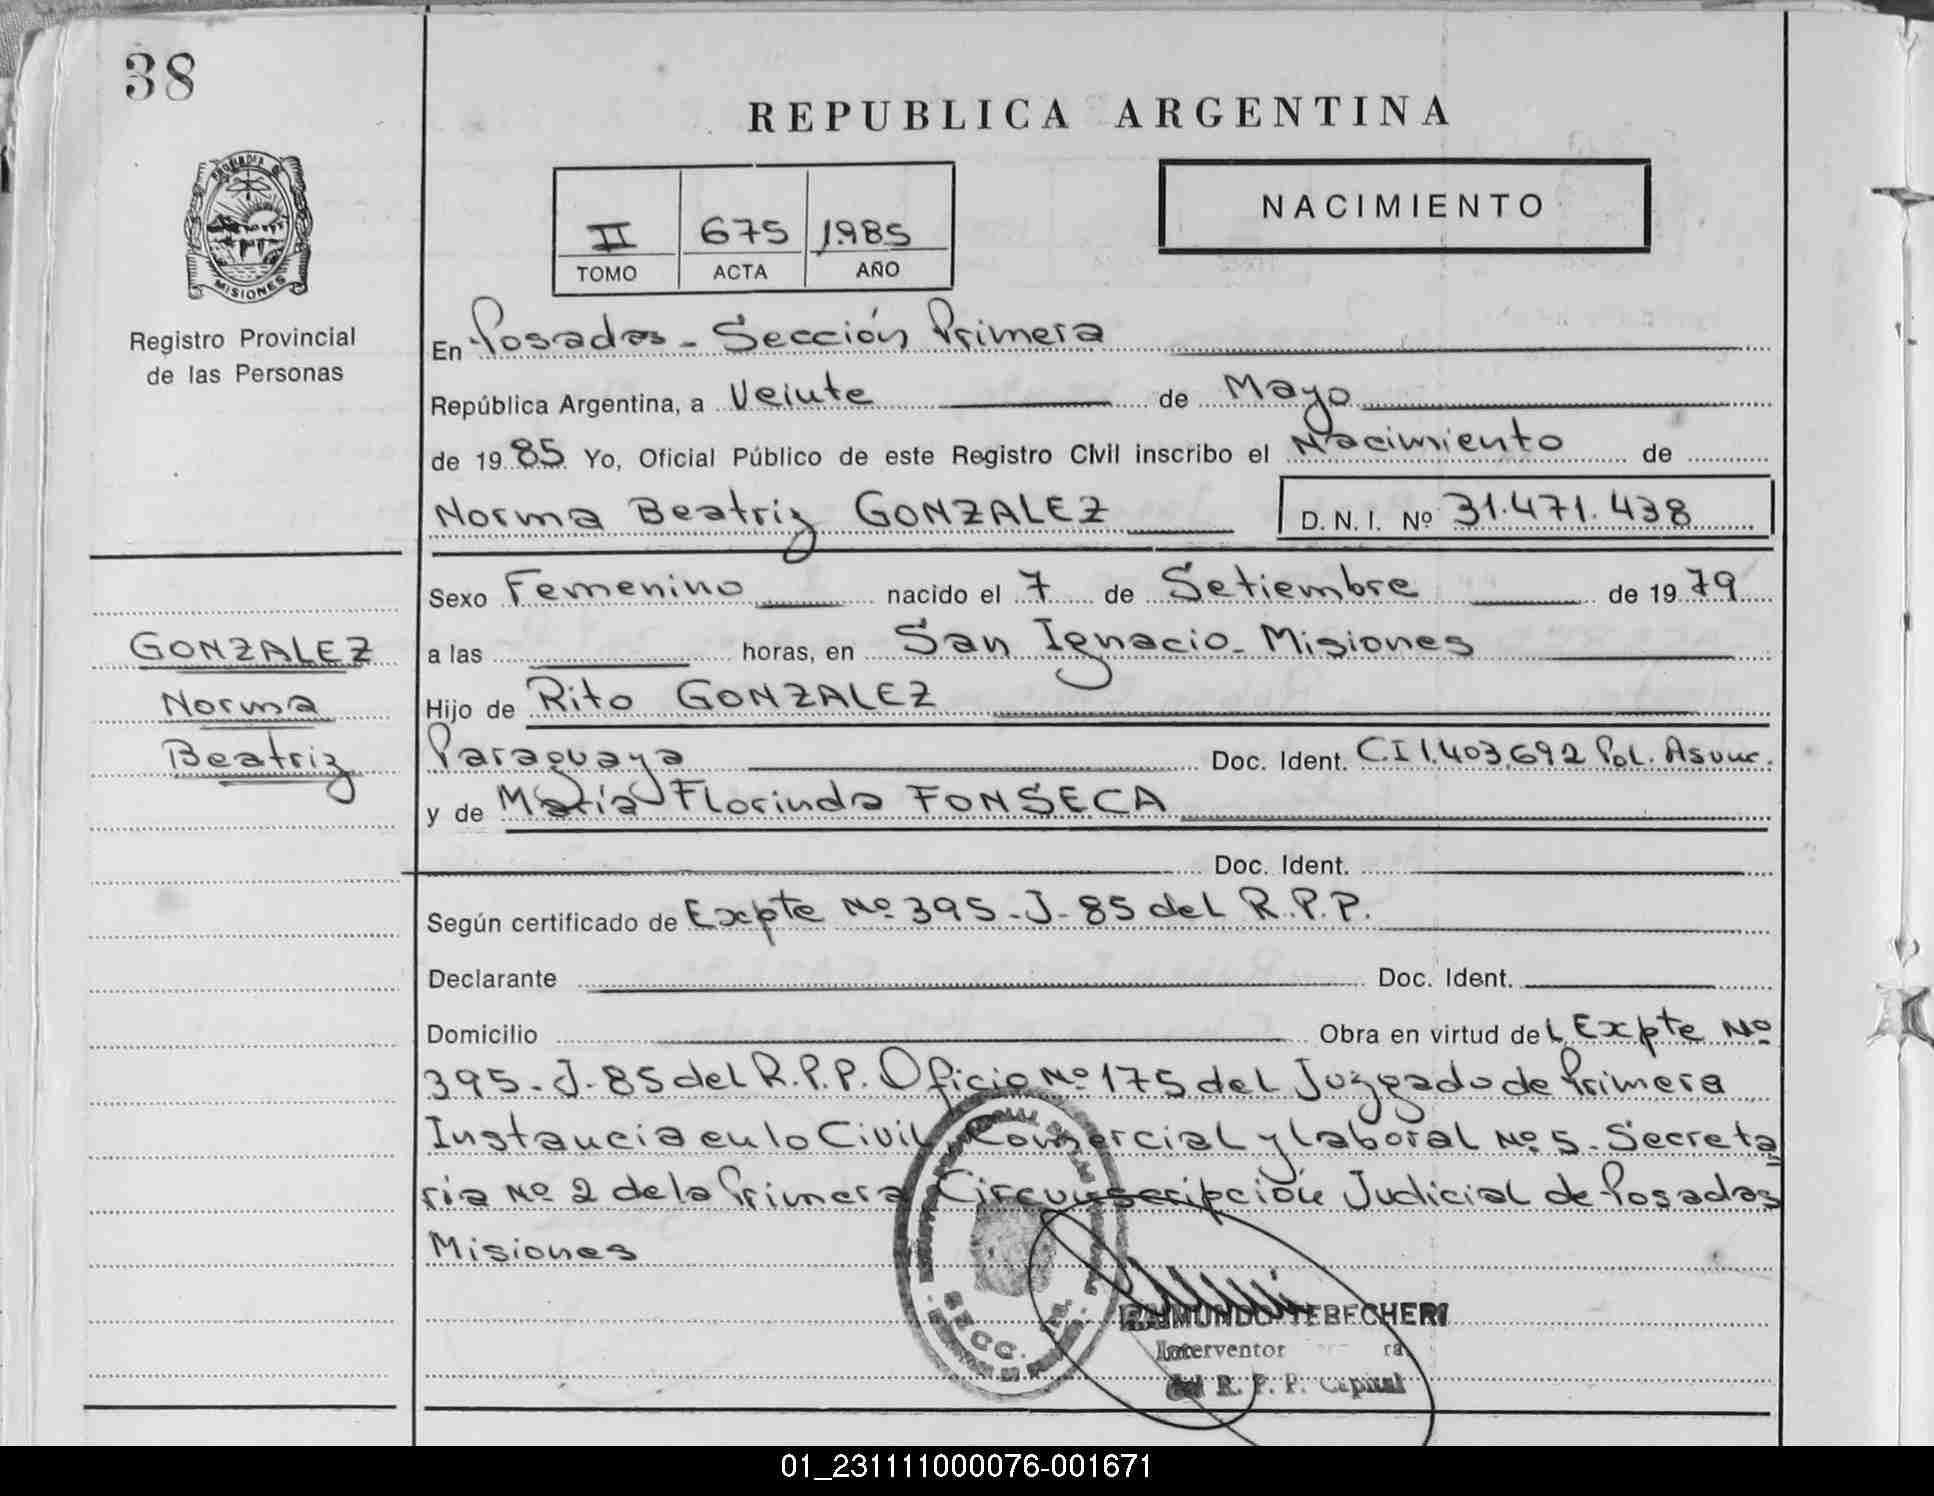 38
REPUBLICA ARGENTINA
PROVINCIA DE
MISIONES
Registro Provincial
de las Personas
II 675 1985
TOMO ACTA AÑO
NACIMIENTO
En Posadas - Sección Primera
República Argentina, a Veinte de Mayo
de 19 85 Yo, Oficial Público de este Registro Civil inscribo el Nacimiento de
Norma Beatriz GONZALEZ D. N. I. Nº 31.471.438
GONZALEZ
Norma
Beatriz
Sexo Femenino nacido el 7 de Setiembre de 19 79
a las horas, en San Ignacio - Misiones
Hijo de Rito GONZALEZ
Paraguaya Doc. Ident. C.I 1.403.692 Pol. Asunc.
y de María Florinda FONSECA
Doc. Ident.
Según certificado de Expte Nº 395-J-85 del R.P.P.
Declarante Doc. Ident.
Domicilio Obra en virtud de L Expte Nº
395-J-85 del R.P.P. Oficio Nº 175 del Juzgado de Primera
Instancia en lo Civil Comercial y Laboral Nº 5 - Secreta
ria Nº 2 de la Primera Circunscripción Judicial de Posadas
Misiones
SECC. 1ra.
RAIMUNDO TEBECHERI
Interventor
del R. P. P. Capital
01_231111000076-001671